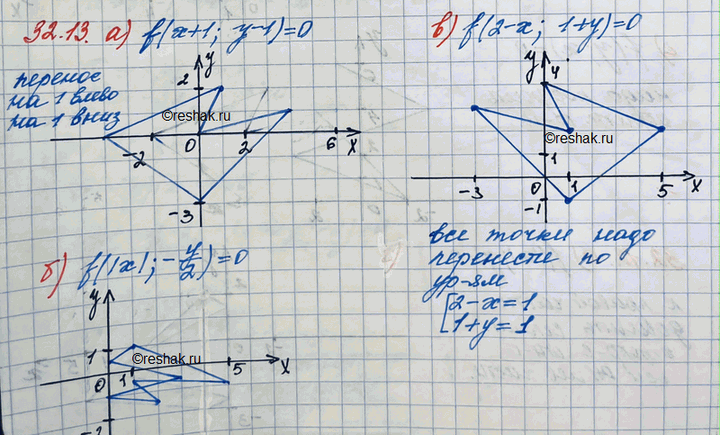 32.13. а) f(x+1; y-1)=0
перенос
на 1 влево
на 1 вниз
y
2
©reshak.ru
-2
0
2
6
x
-3
б) f(|x|; -y/2)=0
y
1
©reshak.ru
0
1
5
x
в) f(2-x; 1+y)=0
y
4
©reshak.ru
1
-3
0
1
5
x
-1
все точки надо
перенести по
ур-ям
[2-x=1
1+y=1